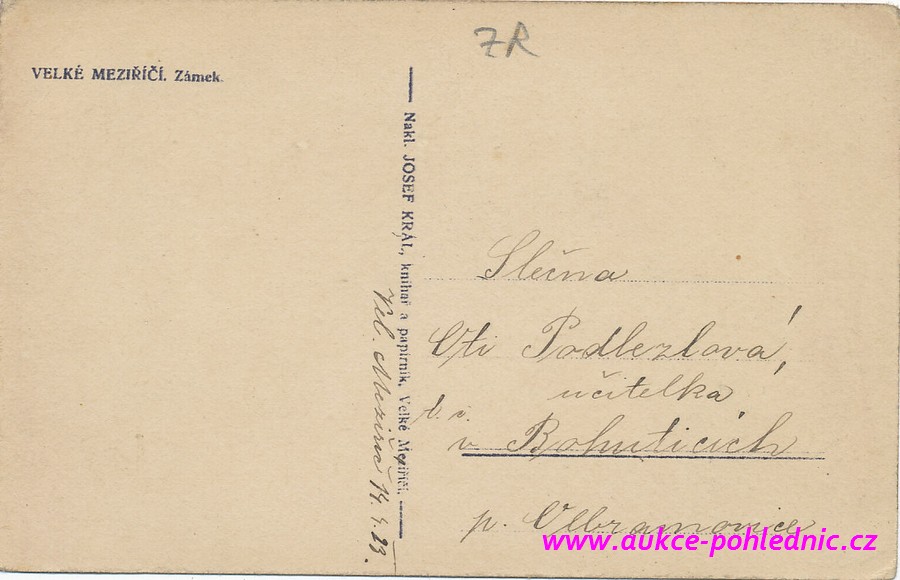 ŽR
VELKÉ MEZIŘÍČÍ. Zámek.
Nakl. JOSEF KRÁL, knihař a papírník, Velké Meziříčí.
Vel. Meziříč 14.
Slečna
Oti Podlezlová,
učitelka
t. č.
v Bohuticích
p. Olbramovice
www.aukce-pohlednic.cz